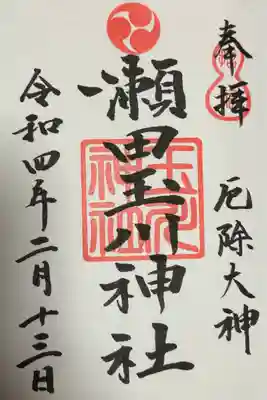 奉拝
厄除大神
瀬田玉川神社
令和四年二月十三日